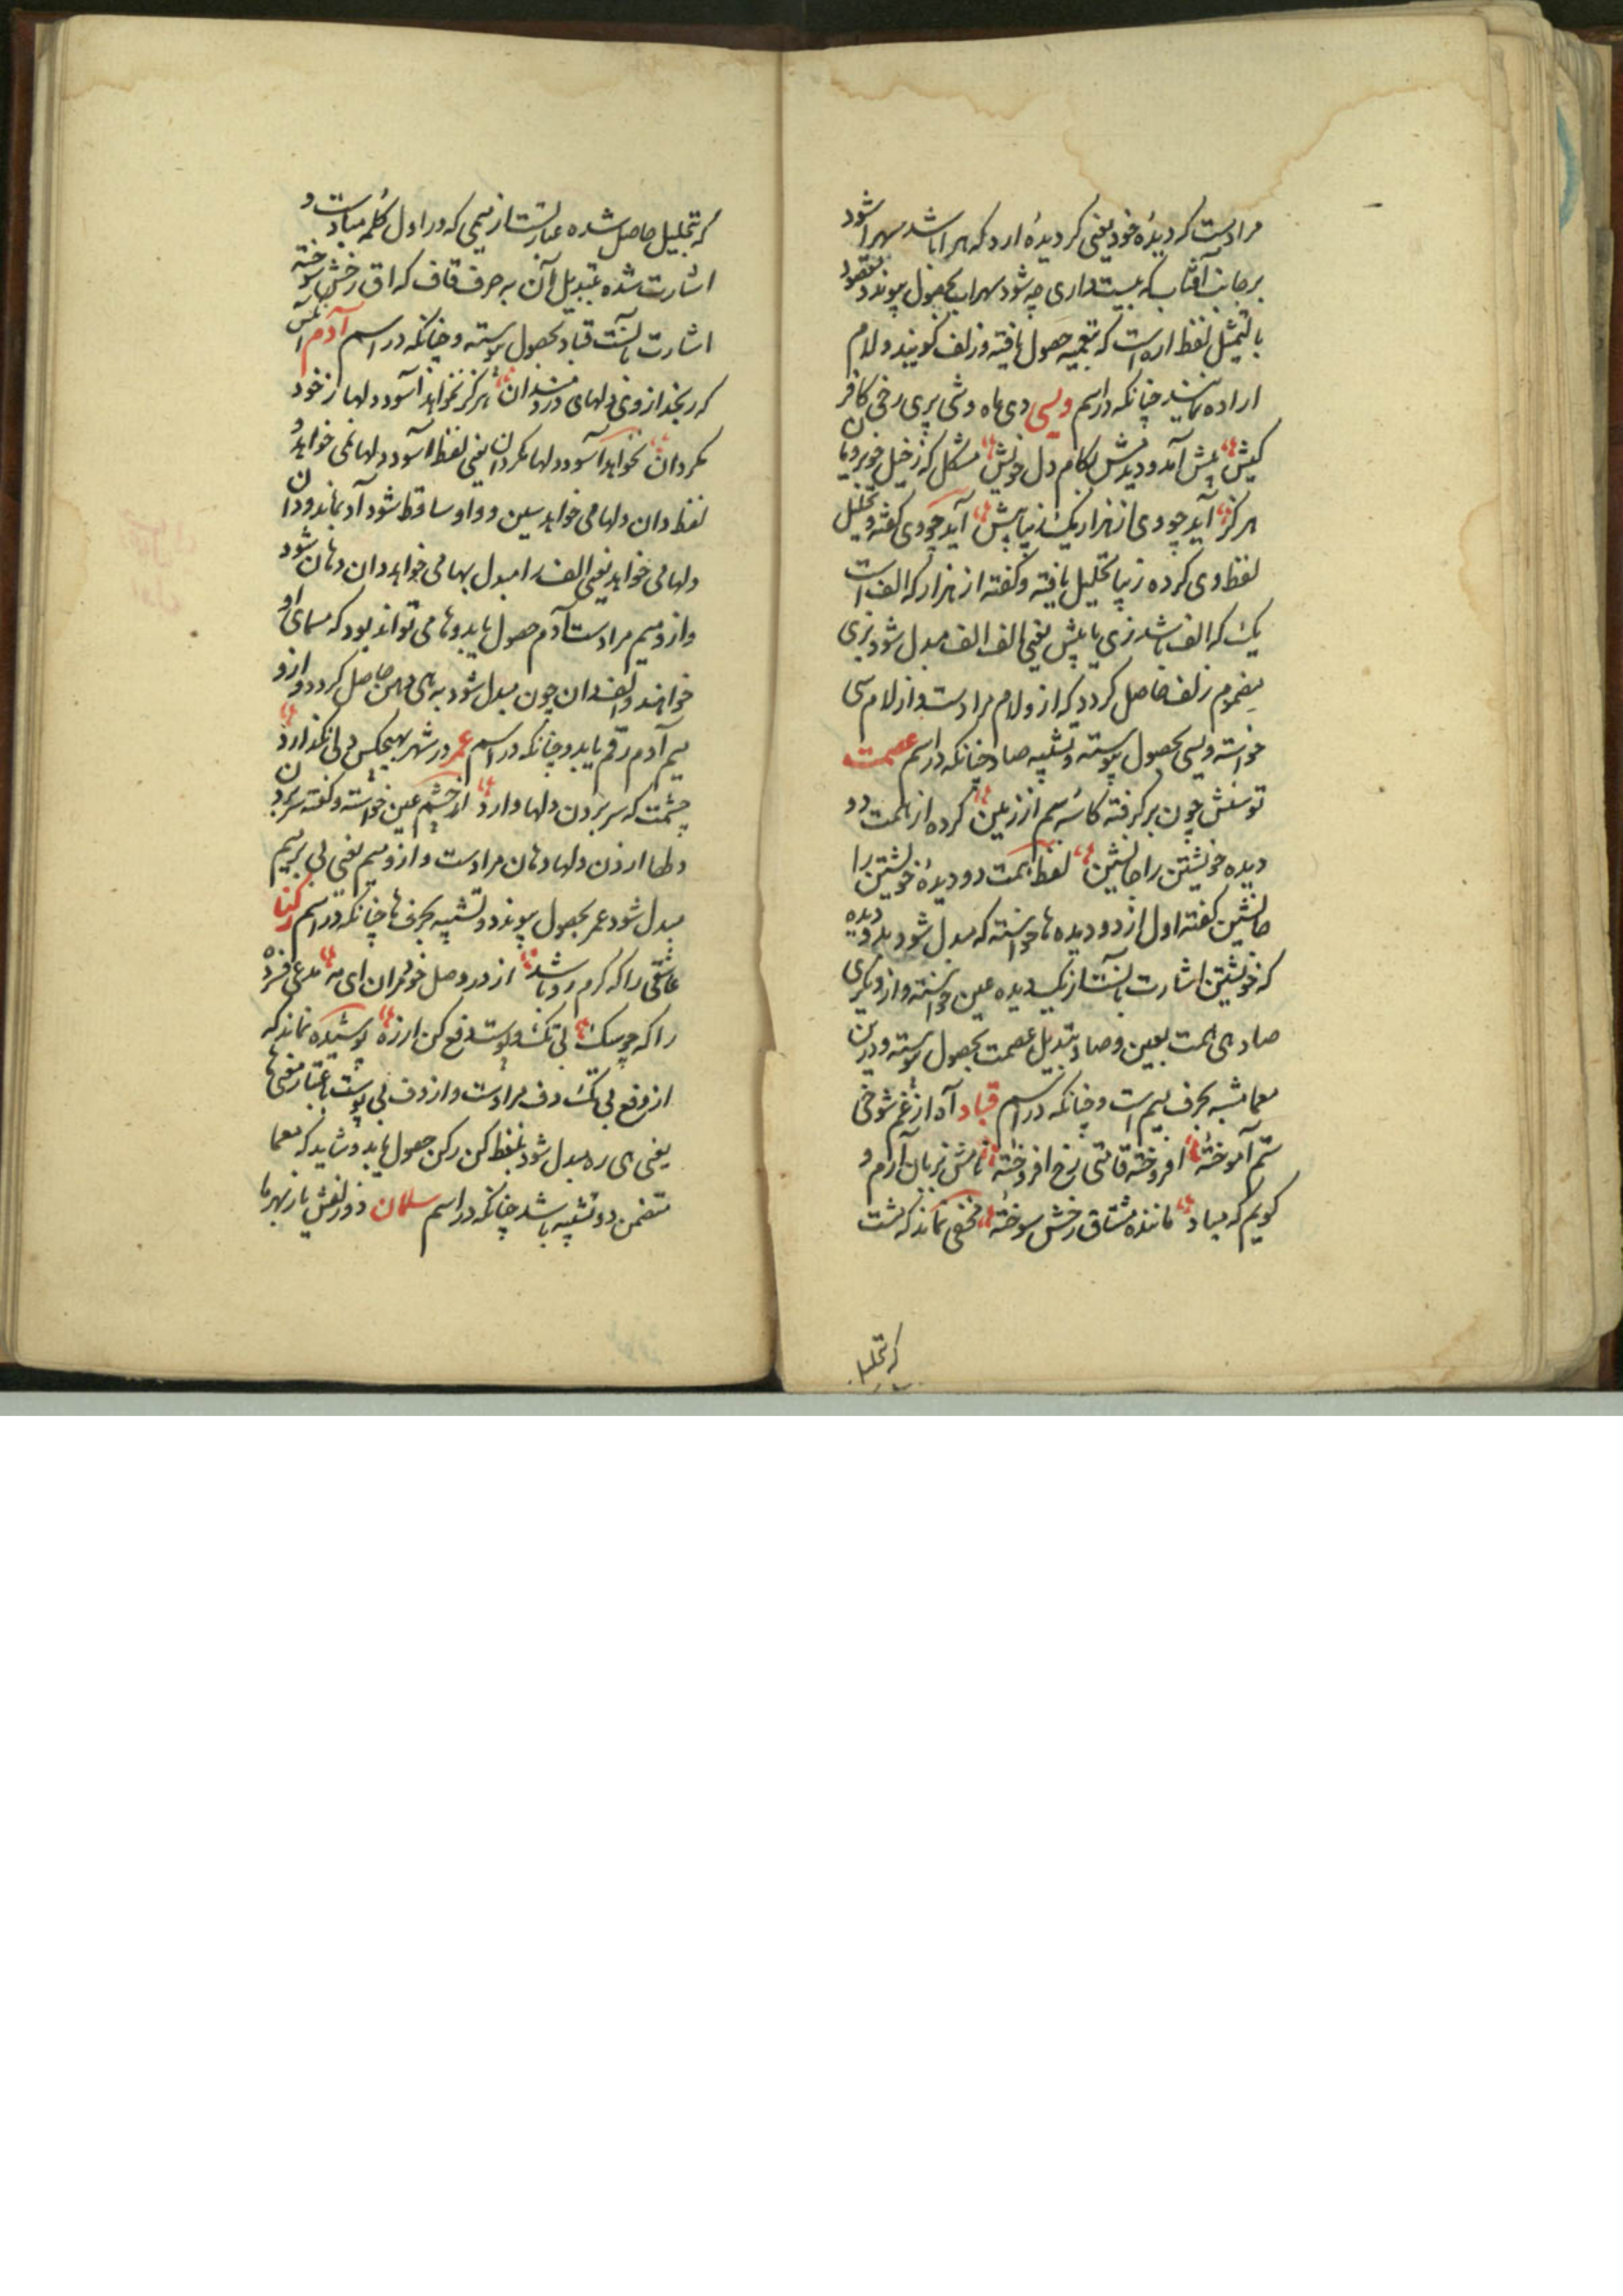 مرادست که دیدۀ خود یعنی کر دیدۀ ارد که هر اباشد سهرا شود
بر جانب آفتاب که بیست داری چه شود سهراب بحصول پیوندد مقصود
بالتمثیل لفظ اره است که بتعمیه حصول یافته و زلف گویند و لام
اراده نمایند چنانکه در اسم ویسی دی ماه وشی پری رخی کافر
کیش پیش آمد و دیدمش بکام دل خویش مشکل که ز خیل خوبرویان
هرگز آید چو وی از هزار یک زیبا پیش آید چو وی گفته و تحلیل
لفظ وی کرده زیبا تحلیل یافته و گفته از هزار که الف است
یک که الف باشد زی با پیش یعنی الف الف مبدل شود بزی
مضموم زلف حاصل گردد که ازو لام مرادست و از لام سی
خواسته ویسی بحصول پیوسته و تشبیه صاد چنانکه در اسم عصمت
توسنش چون برگرفته کاسه سم از زمین کرده از همت دو
دیده خویشتن را جانشین لفظ همت دو دیدۀ خویشتن را
جانشین گفته اول از دو دیده ها خواسته که مبدل شود بدو دیده
که خویشتن اشارت بآنست از یک دیده عین خواسته و از دیگری
صاد های همت بعین و صاد تبدیل عصمت بحصول پیوسته و درین
معما مشبه بحرف میم است و چنانکه در اسم قباد آه از غم شوخی
ستم آموختۀ افروخته قامتی رخ افروختۀ نامش بزبان آرم و
گویم که مباد ماننده مشتاق رخش سوختۀ مخفی نماند که مشت
که تحلیل
که بتحلیل حاصل شده عبارتست از میمی که در اول کلمه مبادست و
اشارت شده بتبدیل آن به حرف قاف که اق رخش سوخته
اشارت بآنست قباد بحصول پیوسته و چنانکه در اسم آدم آنکس
که رنجد از وی دلهای دردمندان هرگز نخواهد آسود دلها ز خود
مگردان نخواهد آسود دلها مگردان یعنی لفظ آسود دلها نمی خواهد و
لفظ دان دلها می خواهد سین و واو ساقط شود آد بماند و دان
دلها می خواهد یعنی الف را مبدل بها می خواهد دان دهان شود
و ازو میم مرادست آدم حصول یابد و ها می تواند بود که مسمای او
خواهند و الف دان چون مبدل شود به های دهن حاصل گردد و ازو
میم آدم رقم یابد و چنانکه در اسم عمر در شهر بهیچکس دلی نگذارد
چشمت که سر بردن دلها دارد از چشم عین خواسته و گفته سر بردن
دلها از دن دلها دهان مرادست و ازو میم یعنی بی بر میم
مبدل شود عمر بحصول پیوندد و تشبیه بحرف ها چنانکه در اسم رکنا
عاشقی را که گرم رو باشد از در وصل خود مران ای مه مدعی فزرۀ
را که چو سگ بی تک و پوست دفع کن از ره پوشیده نماند که
از دفع بی تک دف مرادست و از دف بی پوست باعتبار معنی ها
یعنی های ره مبدل شود بلفظ کن رکن حصول یابد و شاید که معما
متضمن دو تشبیه باشد چنانکه در اسم سلمان دو زلفش باز بهر ما